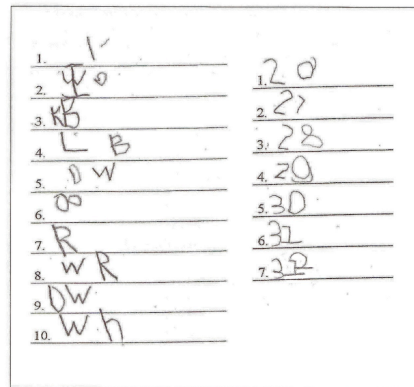 1.
2. o
3. KB
4. L B
5. D W
6. oo
7. R
8. W R
9. DW
10. W h
1. 20
2. 27
3. 28
4. 29
5. 30
6. 31
7. 32